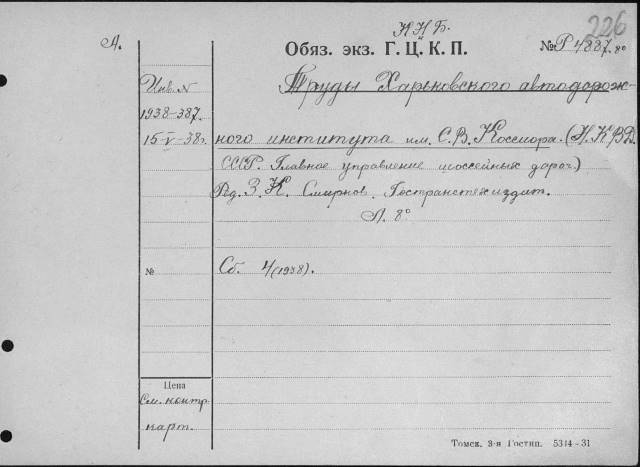 226
Н.Н.Б.
А. Обяз. экз. Г. Ц. К. П. № Р 4887. 8°
Инв. N Труды Харьковского автодорож-
1938-387.
15-V-38г. ного института им. С. В. Коссиора. (Н.К.ВД
СССР. Главное управление шоссейных дорог)
Ред. З. К. Смирнов. Гострансте­хиздат.
Л. 8°
№ Сб. 4 (1938).
Цена
См. контр.
карт.
Томск. 3-я Гостип. 5314-31